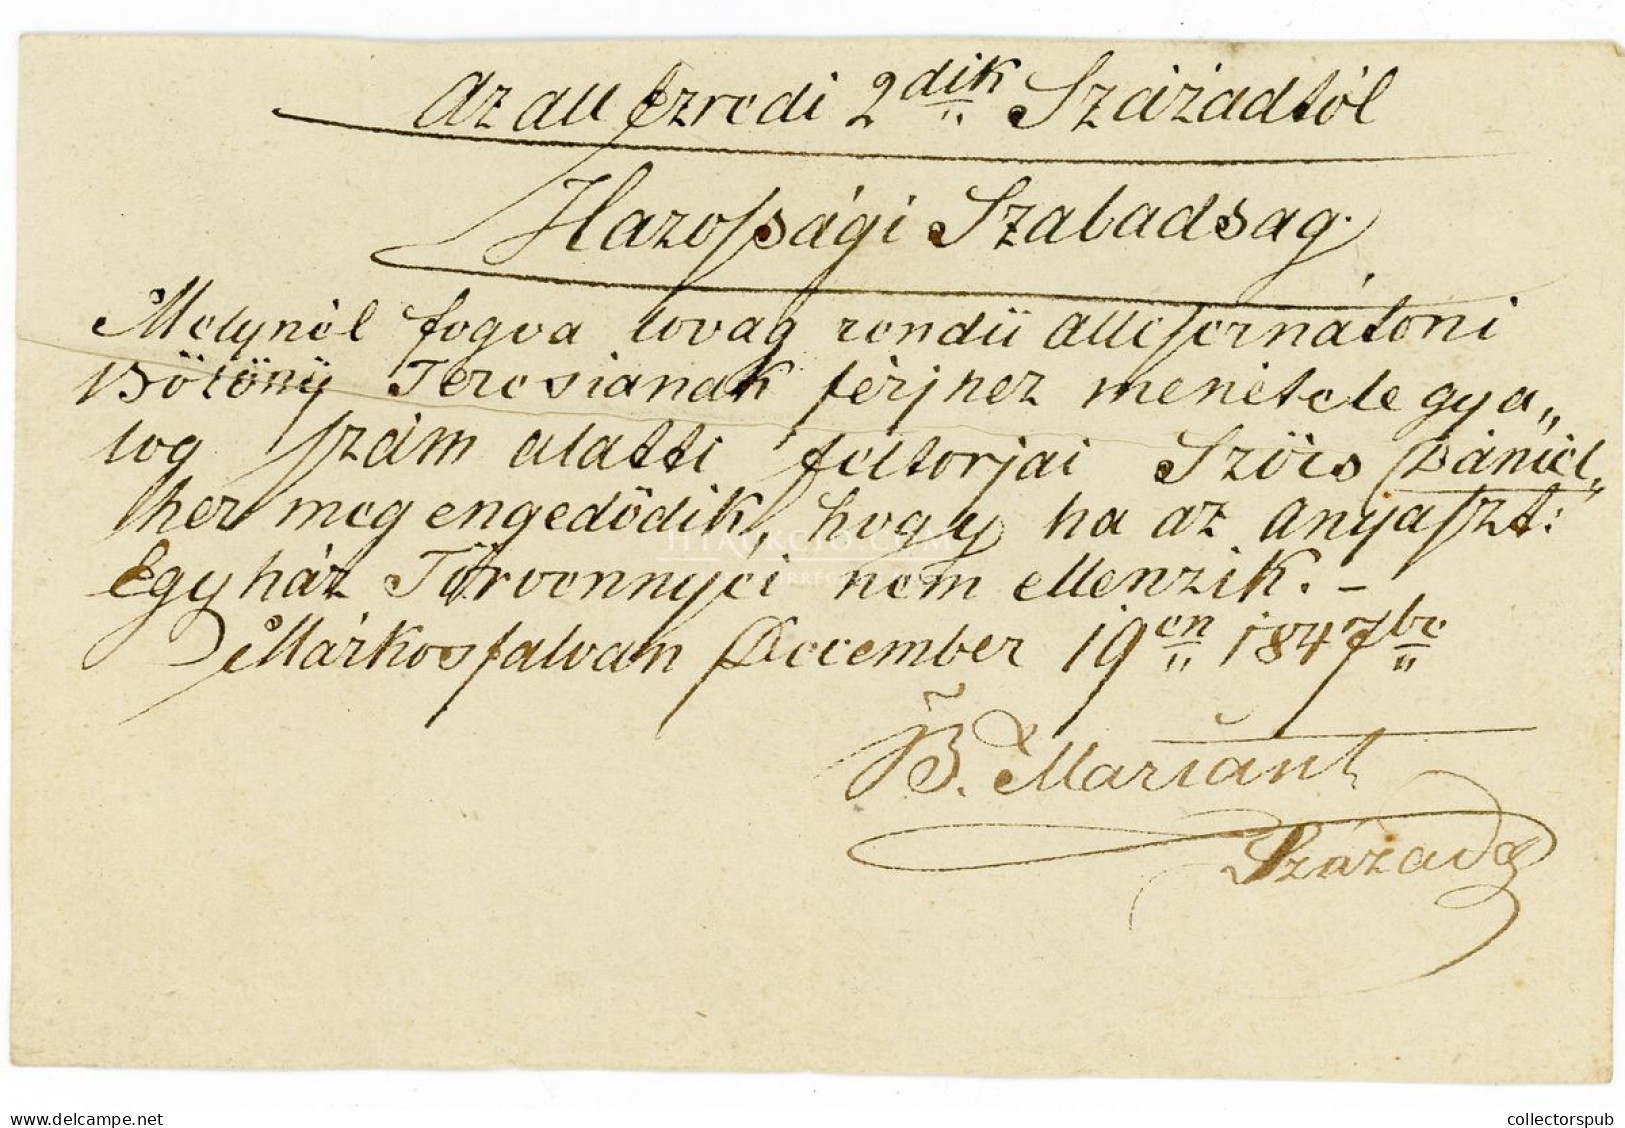 Az all Ezredi 2dik Századtól
Hazossági Szabadság.
Melynél fogva lovag rendü allcsernátoni
Bötöny Teresianak férjhez menétele gya„
log szám alatti feltorjai Szöcs Dániel„
hez meg engedődik, hogy ha az anyaszt:
Egyház Törvennyei nem ellenzik. –
Márkosfalván December 19en 1847be
B. Mariant
Század
HTAUKCIO.COM
www.delcampe.net
collectorspub